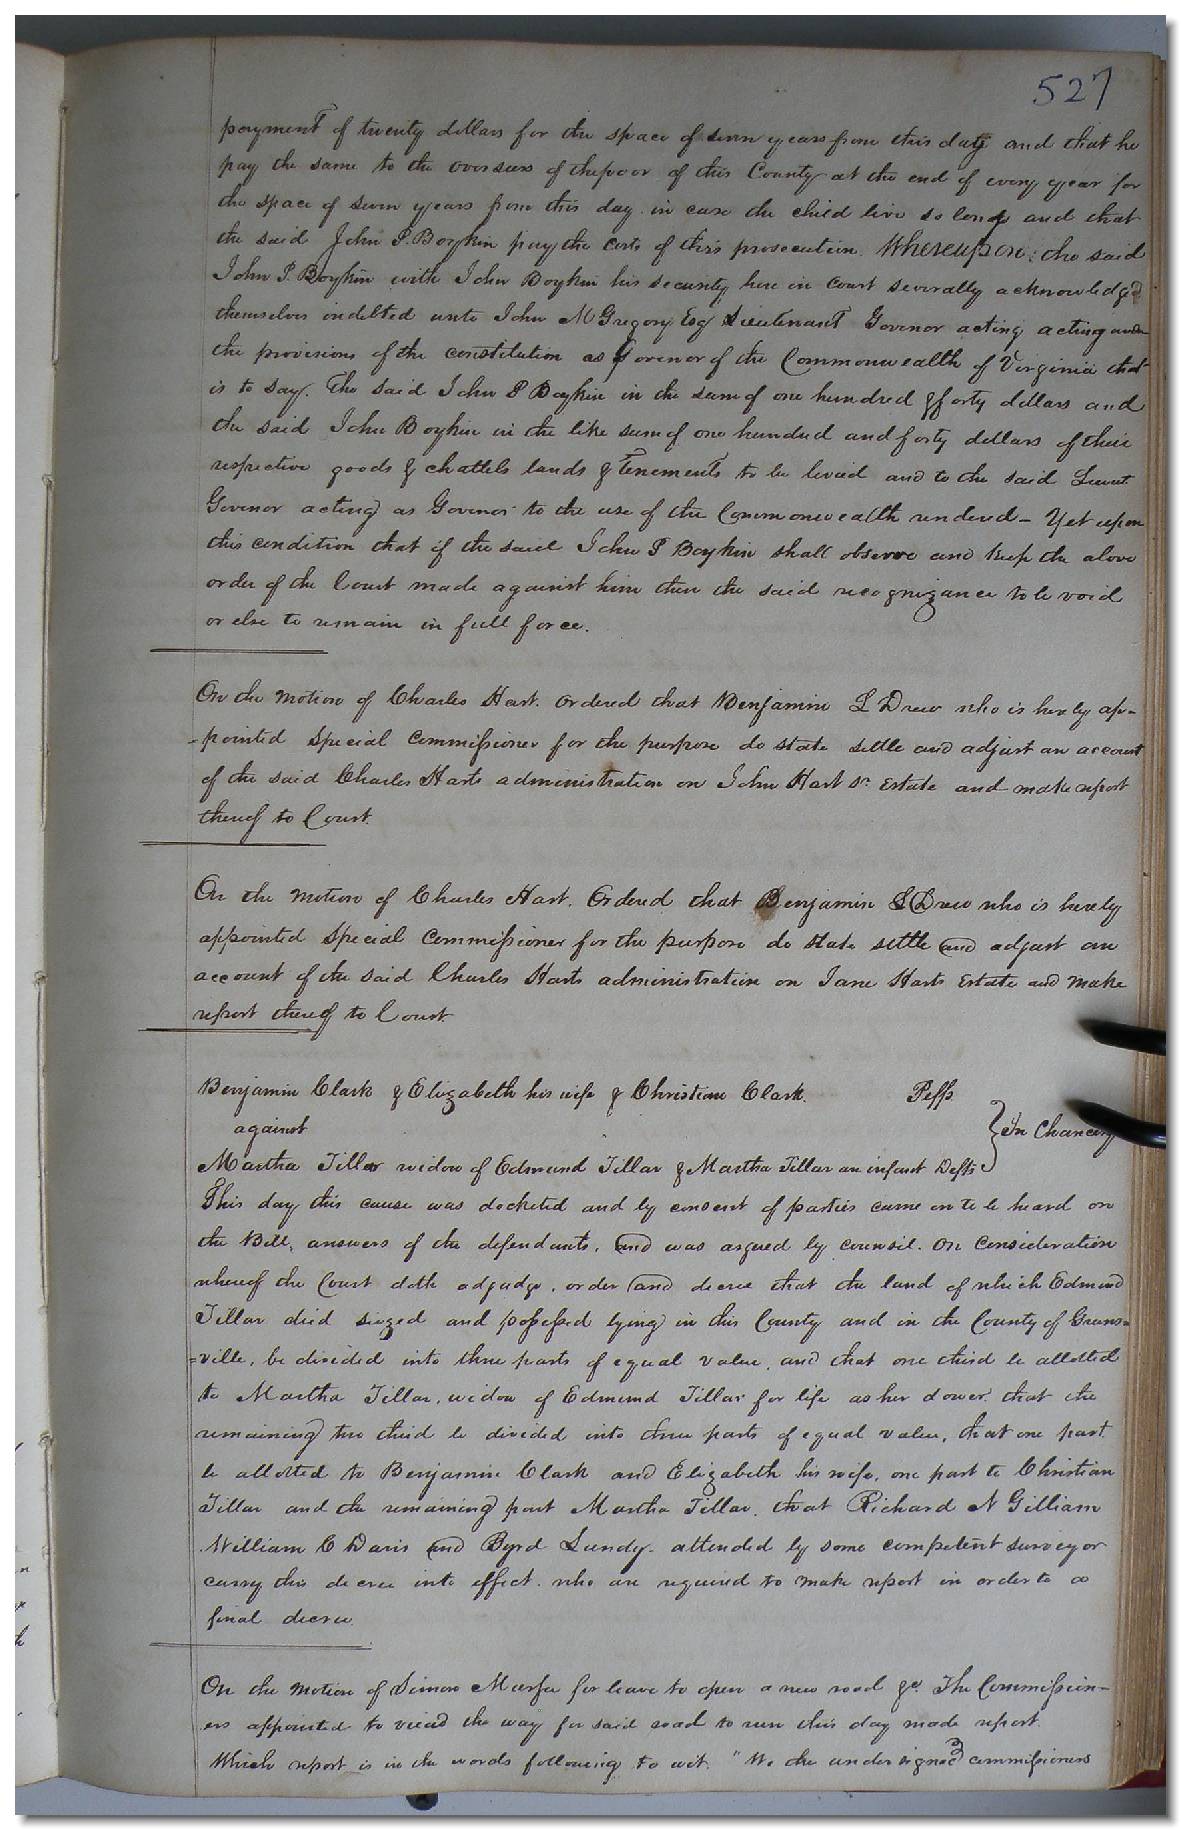 527
payment of twenty dollars for the space of seven years from this day and that he
pay the same to the overseers of the poor of this County at the end of every year for
the space of seven years from this day in case the child live so long and that
the said John P. Boykin pay the costs of this prosecution. Whereupon, the said
John P. Boykin with John Boykin his security here in Court severally acknowledged
themselves indebted unto John McGregory Esq Lieutenant Govenor acting acting under
the provisions of the constitution as Govenor of the Commonwealth of Virginia that
is to say. The said John P Boykin in the sum of one hundred & forty dollars and
the said John Boykin in the like sum of one hundred and forty dollars of their
respective goods & chattels lands & Tenements to be levied and to the said Lieut.
Govenor acting as Govenor to the use of the Commonwealth rendered - Yet upon
this condition that if the said John P Boykin shall observe and keep the above
order of the Court made against him then the said recognizance to be void
or else to remain in full force.
On the motion of Charles Hart. Ordered that Benjamin L Drew who is hereby ap-
-pointed Special Commissioner for the purpose do state settle and adjust an account
of the said Charles Harts administration on John Hart Sr. Estate and make report
thereof to Court.
On the motion of Charles Hart. Ordered that Benjamin L Drew who is hereby
appointed Special Commissioner for the purpose do state settle and adjust an
account of the said Charles Harts administration on Jane Harts Estate and make
report thereof to Court
Benjamin Clark & Elizabeth his wife & Christian Clark. Peffs
against } In Chancery
Martha Tillar widow of Edmund Tillar & Martha Tillar an infant Defts
This day this cause was docketed and by consent of parties came on to be heard on
the Bill, answers of the defendants, and was argued by counsil. On Consideration
whereof the Court doth adjudge, order and decree that the land of which Edmund
Tillar died siezed and possessed lying in this County and in the County of Greens=
=ville, be divided into three parts of equal value, and that one third be allotted
to Martha Tillar, widow of Edmund Tillar for life as her dower. that the
remaining two third be divided into three parts of equal value, that one part
be allotted to Benjamin Clark and Elizabeth his wife, one part to Christian
Tillar and the remaining part Martha Tillar. that Richard N Gilliam
William C Davis and Byrd Lundy attended by some competent surveyor
carry this decree into effect. who are required to make report in order to a
final decree.
On the motion of Simon Murfee for leave to open a new road &c. The Commission-
ers appointed to view the way for said road to run this day made report.
Which report is in the words following to wit. "We the undersigned commissioners